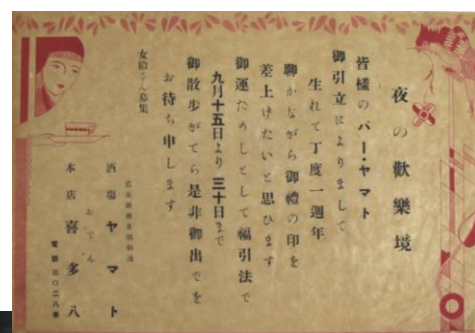 夜の歡樂境
皆様のバー・ヤマト
御引立によりまして
生れて丁度一週年
聊かながら御禮の印を
差上げたいと思ひます
御運ためしとして福引法で
九月十五日より三十日まで
御散歩がてら是非御出でを
お待ち申します
女給さん募集
酒場 ヤマト
おでん
本店 喜多八
電話三〇二八番